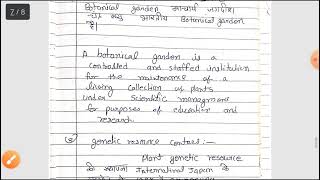 7/8
Botanical garden आचार्य जगदीश
भारतीय Botanical garden
है।
A botanical garden is a
controlled and staffed institution
for the maintenance of a
living collection of plants
under Scientific management
for purposes of education and
research
genetic resource centres:-
Plant genetic resource
International Japan के